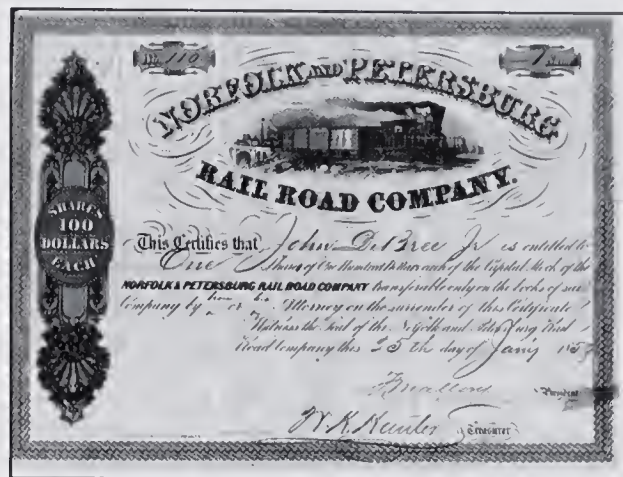 No. 110
1 Shares
NORFOLK AND PETERSBURG
RAIL ROAD COMPANY.
SHARES
100
DOLLARS
EACH
This Certifies that John DeBree Jr is entitled to
One Shares of One Hundred Dollars each of the Capital Stock of the
NORFOLK & PETERSBURG RAIL ROAD COMPANY transferable only on the books of said
Company by him or his Attorney on the surrender of this Certificate
Witness the Seal of the Norfolk and Petersburg Rail
Road Company this 25th day of Jany 185
President
Treasurer